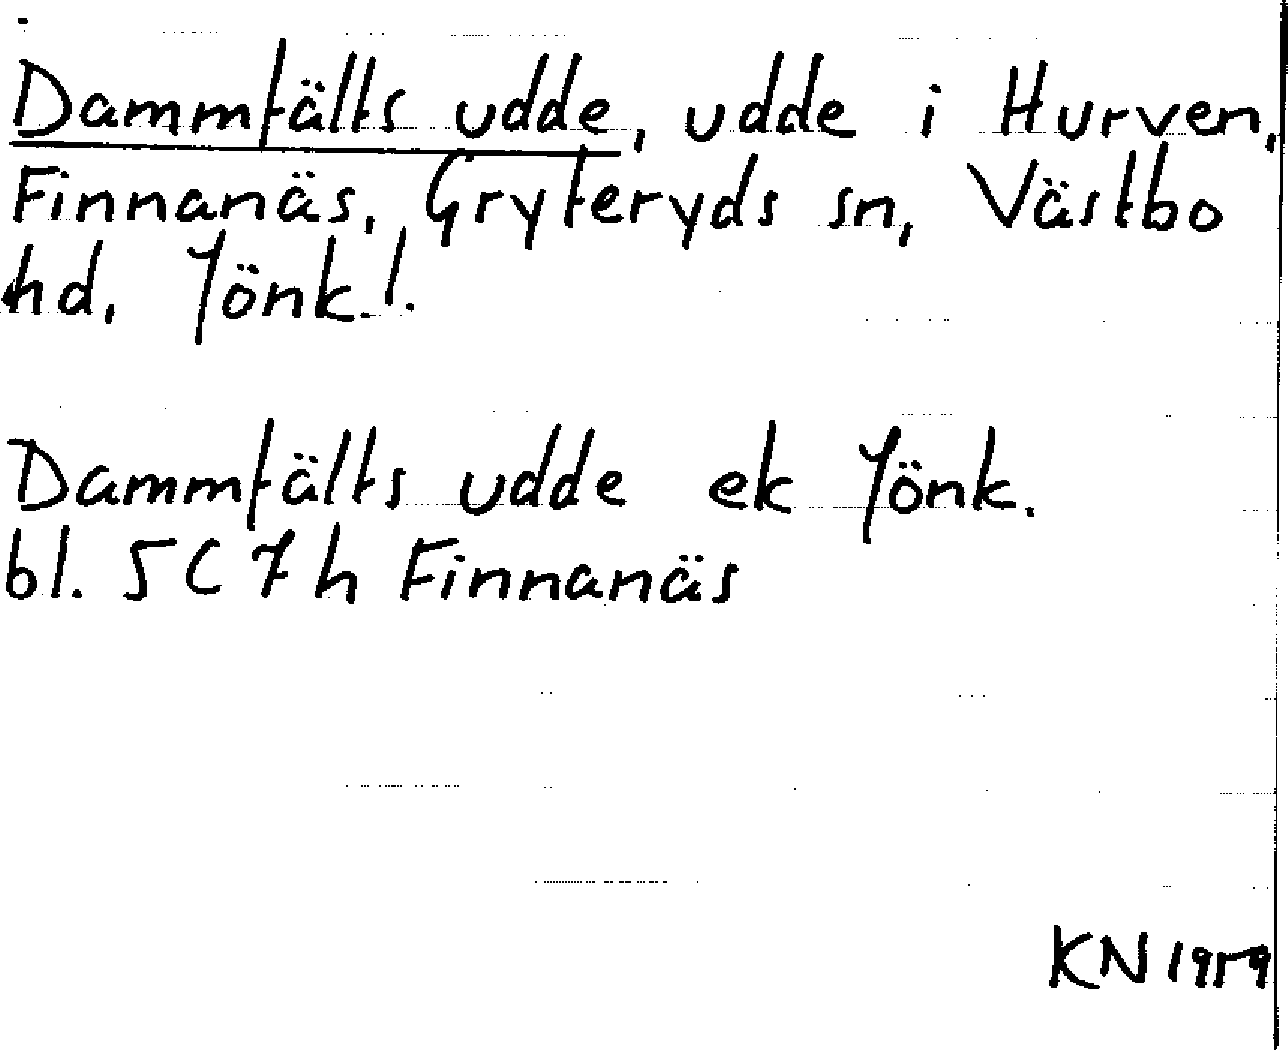 Dammfälts udde, udde i Hurven,
Finnanäs, Gryteryds sn, Västbo
hd. Jönk. l.
Dammfälts udde ek Jönk.
bl. 5C7h Finnanäs
KN 1959